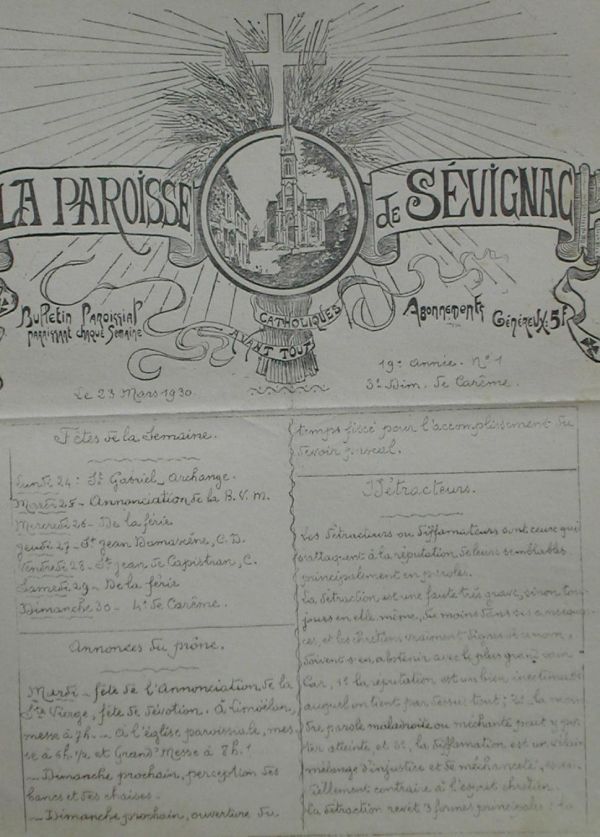 LA PAROISSE de SÉVIGNAC
Bulletin Paroissial
paraissant chaque Semaine
CATHOLIQUES
AVANT TOUT
Abonnements
Généreux: 5F
Le 23 Mars 1930.
19e Année. N° 1
3e Dim. de Carême.
Fêtes de la Semaine.
Lundi 24: St Gabriel, Archange.
Mardi 25 - Annonciation de la B. V. M.
Mercredi 26 - De la férie
Jeudi 27 - St Jean Damascène, C. D.
Vendredi 28 - St Jean de Capistran, C.
Samedi 29 - De la férie
Dimanche 30 - 4e de Carême.
Annonces du prône.
Mardi - fête de l'Annonciation de la
Ste Vierge, fête de dévotion. A Limoëlan,
messe à 7h. - A l'église paroissiale, mes-
se à 6h.½ et Grand'Messe à 8h.!
- Dimanche prochain, perception des
bancs et des chaises.
- Dimanche prochain, ouverture du
temps fixé pour l'accomplissement du
devoir pascal.
Détracteurs.
Les détracteurs ou diffamateurs sont ceux qui
s'attaquent à la réputation de leurs semblables
principalement en paroles.
La détraction est une faute très grave, sinon tou-
jours en elle même, du moins dans ses conséquen-
ces, et les chrétiens vraiment dignes de ce nom,
doivent s'en abstenir avec le plus grand soin
Car, 1° la réputation est un bien inestimable
auquel on tient par dessus tout; 2° la moin-
dre parole maladroite ou méchante peut y por-
ter atteinte et 3°, la diffamation est un vilain
mélange d'injustice et de méchanceté,
tiellement contraire à l'esprit chrétien.
La détraction revêt 3 formes principales: la